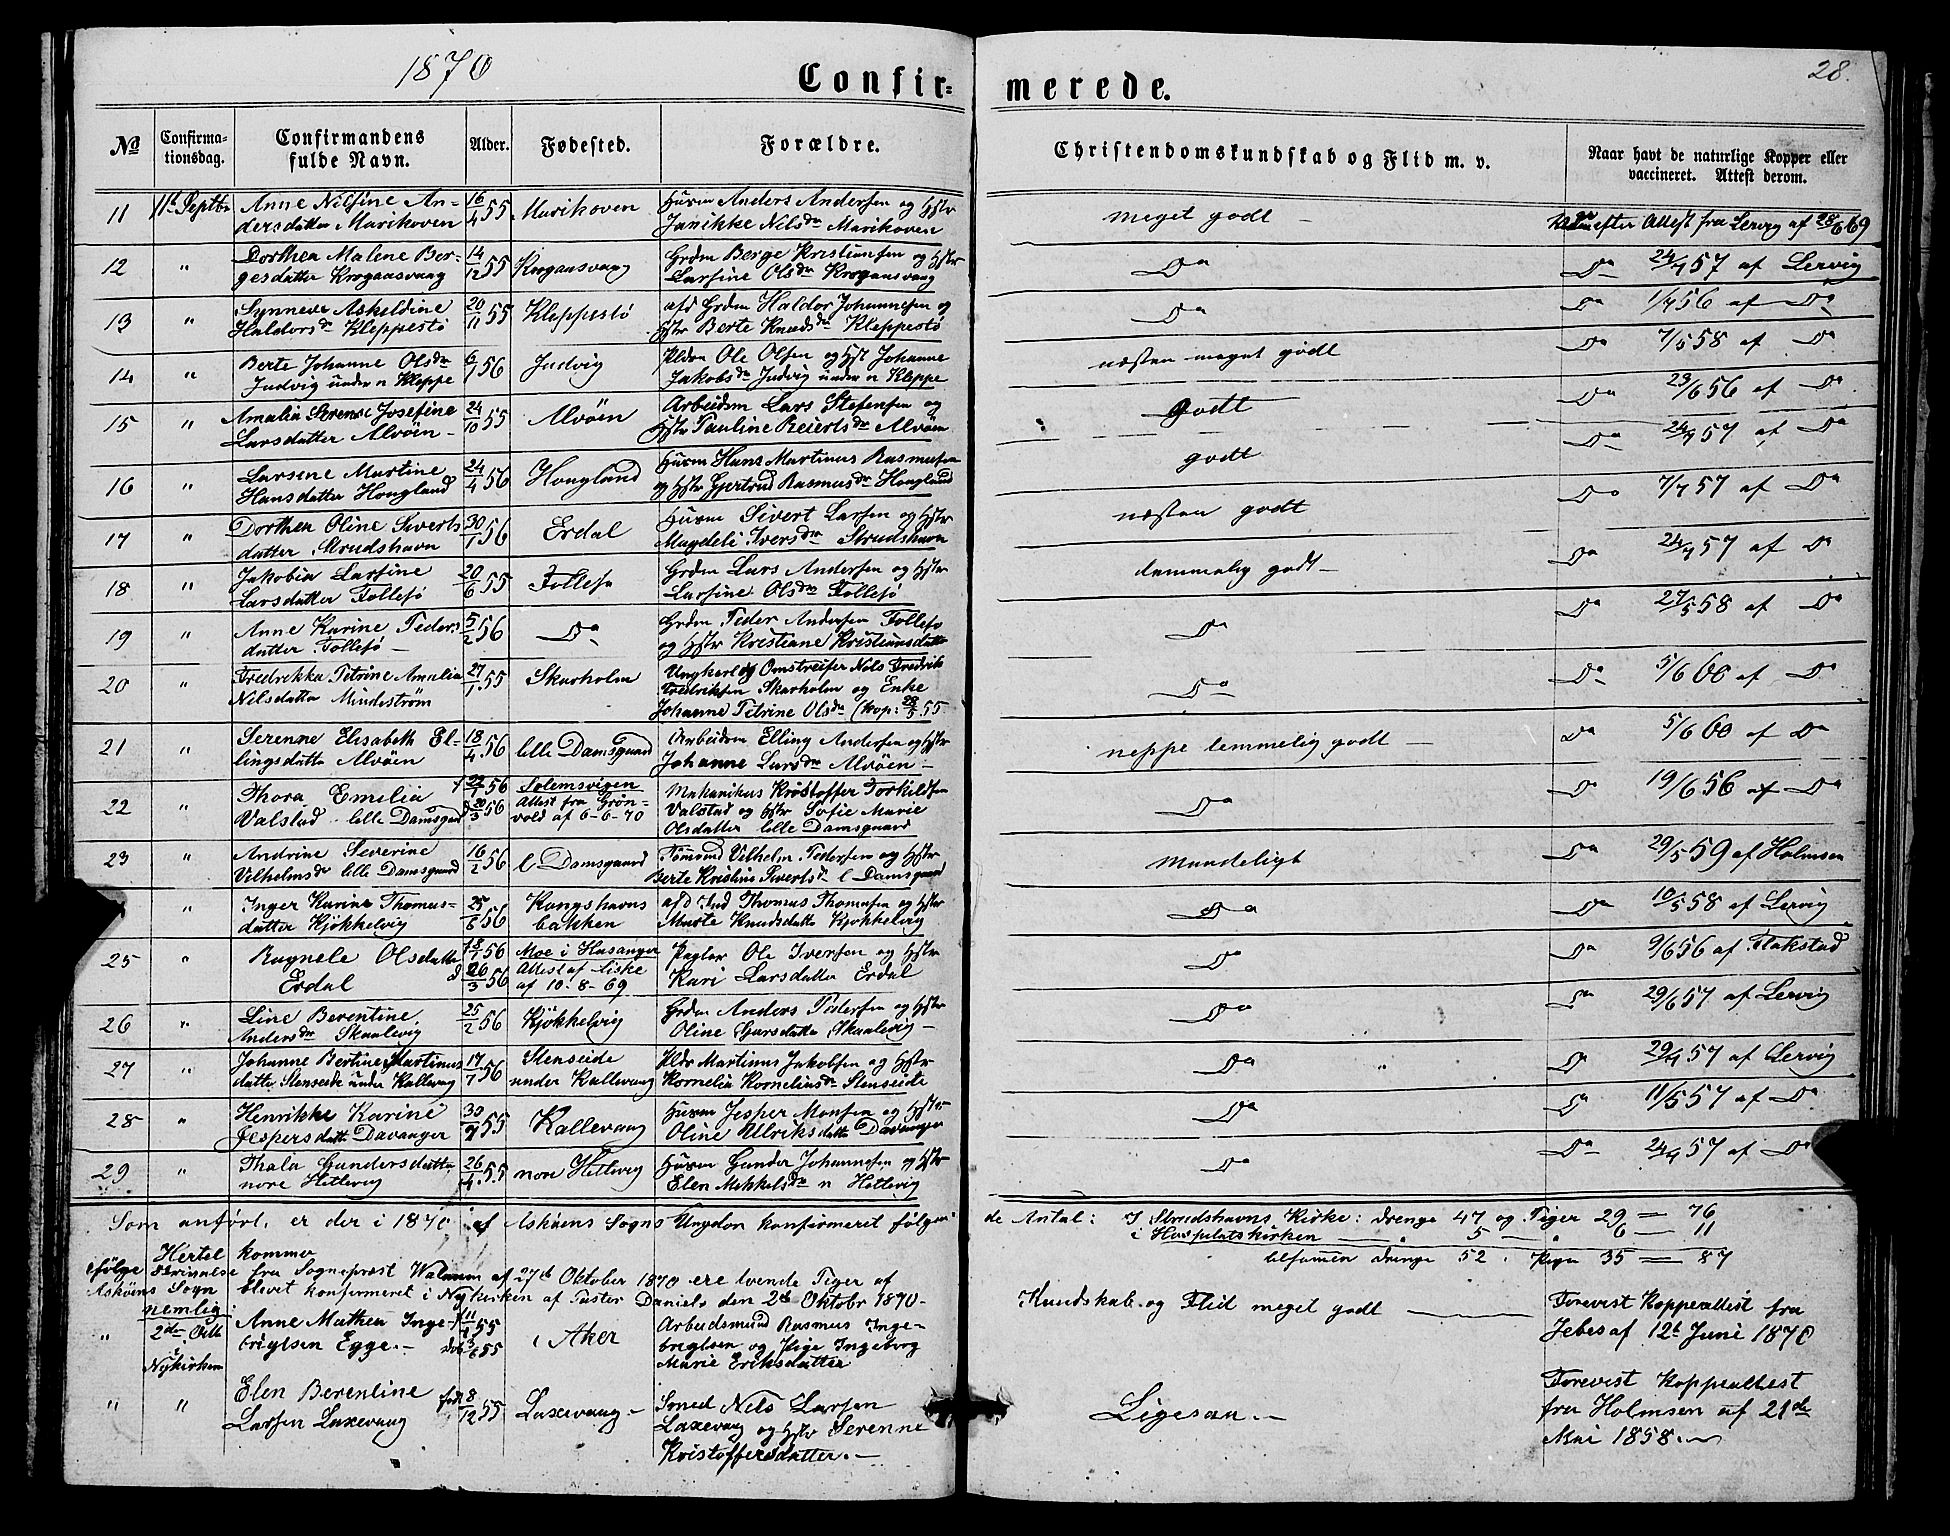 1870
28.
Confir=
merede.
No
Confirma-
tionsdag.
Confirmandens
fulde Navn.
Alder.
Fødested.
Forældre.
Christendomskundskab og Flid m. v.
Naar havt de naturlige Kopper eller
vaccineret. Attest derom.
11 11t Septbr Anne Nilsine An- 16/4 55 Marikoven Husm Anders Andersen og Hstr meget godt – efter Attest fra Lervig af 28/6 69
dersdatter Marikoven Janikke Nelsdr Marikoven
12 " Dorthea Malene Ber- 14/12 55 Krogaasvaag Grdm Berge Kristiansen og Hstr Do Do 24/7 57 af Lervig
gesdatter Krogaasvaag Larsine Olsdr Krogaasvaag
13 " Synneve Askeldine 20/11 55 Kleppestö afd Grdm Haldor Johannesen og Do Do 1/7 56 af Do
Haldorsdr Kleppestö Hstr Berte Knudsdr Kleppestö
14 " Berte Johanne Olsdr 6/1 56 Judvig Pldsm Ole Olsen og Hst Johanne næsten meget godt Do 7/5 58 af Do
Judvig under n Kleppe Jakobsdr Judvig under n Kleppe
15 " Amalia Serene Josefine 24/10 55 Alvöen Arbeidsm Lars Stefensen og godt Do 23/6 56 af Do
Larsdatter Alvöen – Hstr Pauline Reiertsdr Alvöen
16 " Larsene Martine 24/4 56 Hougland Husm Hans Martinus Rasmusen godt Do 24/7 57 af Do
Hansdatter Hougland og Hstr Gjertrud Rasmusdr Hougland
17 " Dorthea Oline Siverts 30/1 56 Erdal Husm Sivert Larsen og Hstr næsten godt Do 7/7 57 af Do
datter Strudshavn Magdeli Iversdr Strudshavn
18 " Jakobia Larsine 20/6 55 Follesø Grdm Lars Andersen og Hstr temmelig godt – Do 24/7 57 af Do
Larsdatter Follesö Larsine Olsdr Follesö
19 " Anne Karine Peders 5/2 56 Do Grdm Peder Andersen Follesø Do Do 27/5 58 af Do
datter Follesö – og Hstr Kristiane Kristiansdatter
20 " Fredrikka Petrine Amalia 27/1 55 Skarholm Ungkarl og Omstreifer Nels Fredrik Do Do 5/6 60 af Do
Nilsdatter Mindeström Fredriksen Skarholm og Enke
Johanne Petrine Olsdr (kop: 28/5 55
21 " Serenne Elisabeth El- 18/4 56 lille Damsgaard Arbeidsm Elling Andersen og Hstr neppe temmelig godt – Do 5/6 60 af Do
lingsdatter Alvöen Johanne Larsdr Alvöen –
22 " Thora Emilia f 22/1 56 Solemsvigen Mekanikus Kristoffer Torkildsen Do Do 19/6 56 af Do
Valstad lille Damsgard d 20/3 56 Attest fra Grön- Valstad og Hstr Sofie Marie
vold af 6-6-70 Olsdatter lille Damsgaard
23 " Andrine Severine 16/2 56 l Damsgaard Tømmd Vilhelm Pedersen og Hstr maadeligt Do 29/5 59 af Holmsen
Vilhelmsdr lille Damsgaard Berte Kristine Sivertsdr l Damsgaard
" Inger Karine Thomas- 25/6 56 Kongshavns afd Thomas Thomasen og Hstr Do Do 10/5 58 af Lervig
datter Kjøkkelvig bakken Marte Knudsdatter Kjokkelvig
25 " Ragnele Olsdatter f 8/1 56 Moe i Hosanger Ole Iversen og Hstr Do Do 9/6 56 af Flakstad
Erdal d 26/3 56 Attest af Aiske Kari Larsdatter Erdal
af 10-8-69
26 " Line Berentine 25/2 56 Kjøkkelvig Grdm Anders Pedersen og Hstr Do Do 29/6 57 af Lervig
Andersdr Skaalevig Oline Larsdatter Skaalevig –
27 " Johanne Bertine Martinus 17/7 56 Stenseide Plds Martinus Jakobsen og Hstr Do " Do 29/4 57 af Lervig
datter Stenseide under Kallevaag under Kallevaag Kornelia Korneliusdr Stenseide
28 " Henrikke Karine 30/9 55 Kallevaag Husm Jesper Monsen og Hstr Do Do 11/5 57 af Do
Jespersdatter Davanger Oline Ulriksdatter Davanger
29 " Thala Gundersdatter 26/4 55 nore Hetlevig Husm Gunder Johannesen og Hstr Do Do 24/4 57 af Do
nore Hetlevig Elen Mekkelsdr n Hetlevig
Som anført, er der i 1870 af Askøens Sogns Ungdon konfirmeret følgen- de Antal: I Strudshavns Kirke: drenge 47 og Piger 29 = 76
i Hospitalskirken – 5 – " 6 – 11
tilsamen drenge 52. Piger 35 = 87
ifølge Skrivelse fra Sognepræst af 27de Oktober 1870 ere tvende Piger af
Askøens Sogn blevet konfirmeret i Nykirken af Pastor Daniels den 2de Oktobr 1870 –
nemlig:
" 2den Oktb Anne Mathea Inge- f 11/4 55 i Aker Arbeidsmand Rasmus Inge- Kundskab og Flid meget godt – Forevist Koppeattest fra
i Nykirken brigtsen Egge – døb 3/6 55 brigtsen og Pige Ingeborg Jebes af 12te Juni 1870
Marie Eriksdatter
" " Elen Berentine fød 8/12 55 Laxevaag – Smed Nels Larsen Ligesaa. – Forevist Koppeattest
Larsen Laxevaag Laxevaag og Hstr Serenne fra Holmsen af 21de
Kristoffersdatter. – Mai 1858.